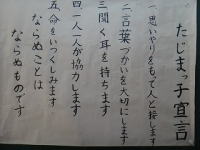 たじまっ子宣言
一、思いやりをもって人と接します
二、言葉づかいを大切にします
三、聞く耳を持ちます
四、一人一人が協力します
五、命をいつくしみます
ならぬことは
ならぬものです